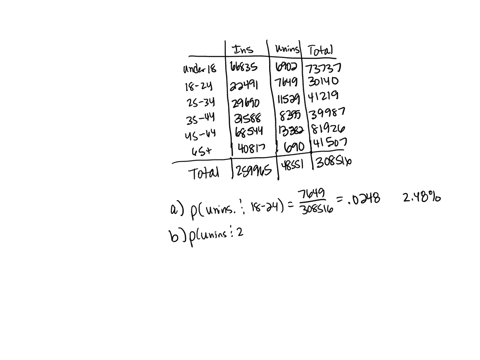 Ins Unins Total
under 18 66835 6902 73737
18-24 22491 7649 30140
25-34 29690 11529 41219
35-44 31588 8395 39987
45-64 68544 13382 81926
65+ 40817 690 41507
Total 259965 48551 308516
a) p(unins. ⋮ 18-24) = 7649/308516 = .0248 2.48%
b) p(unins ⋮ 2